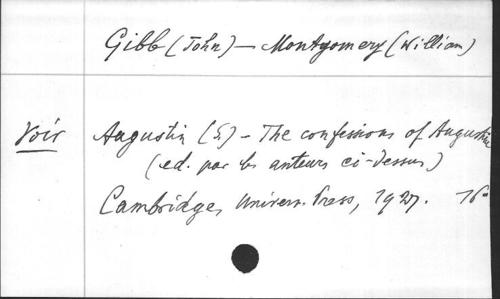 Gibb (John) — Montgomery (William)
Voir Augustin (S) - The confessions of Augustine
(ed. par les auteurs ci-dessus)
Cambridge, Univers. Press, 1927. 16°